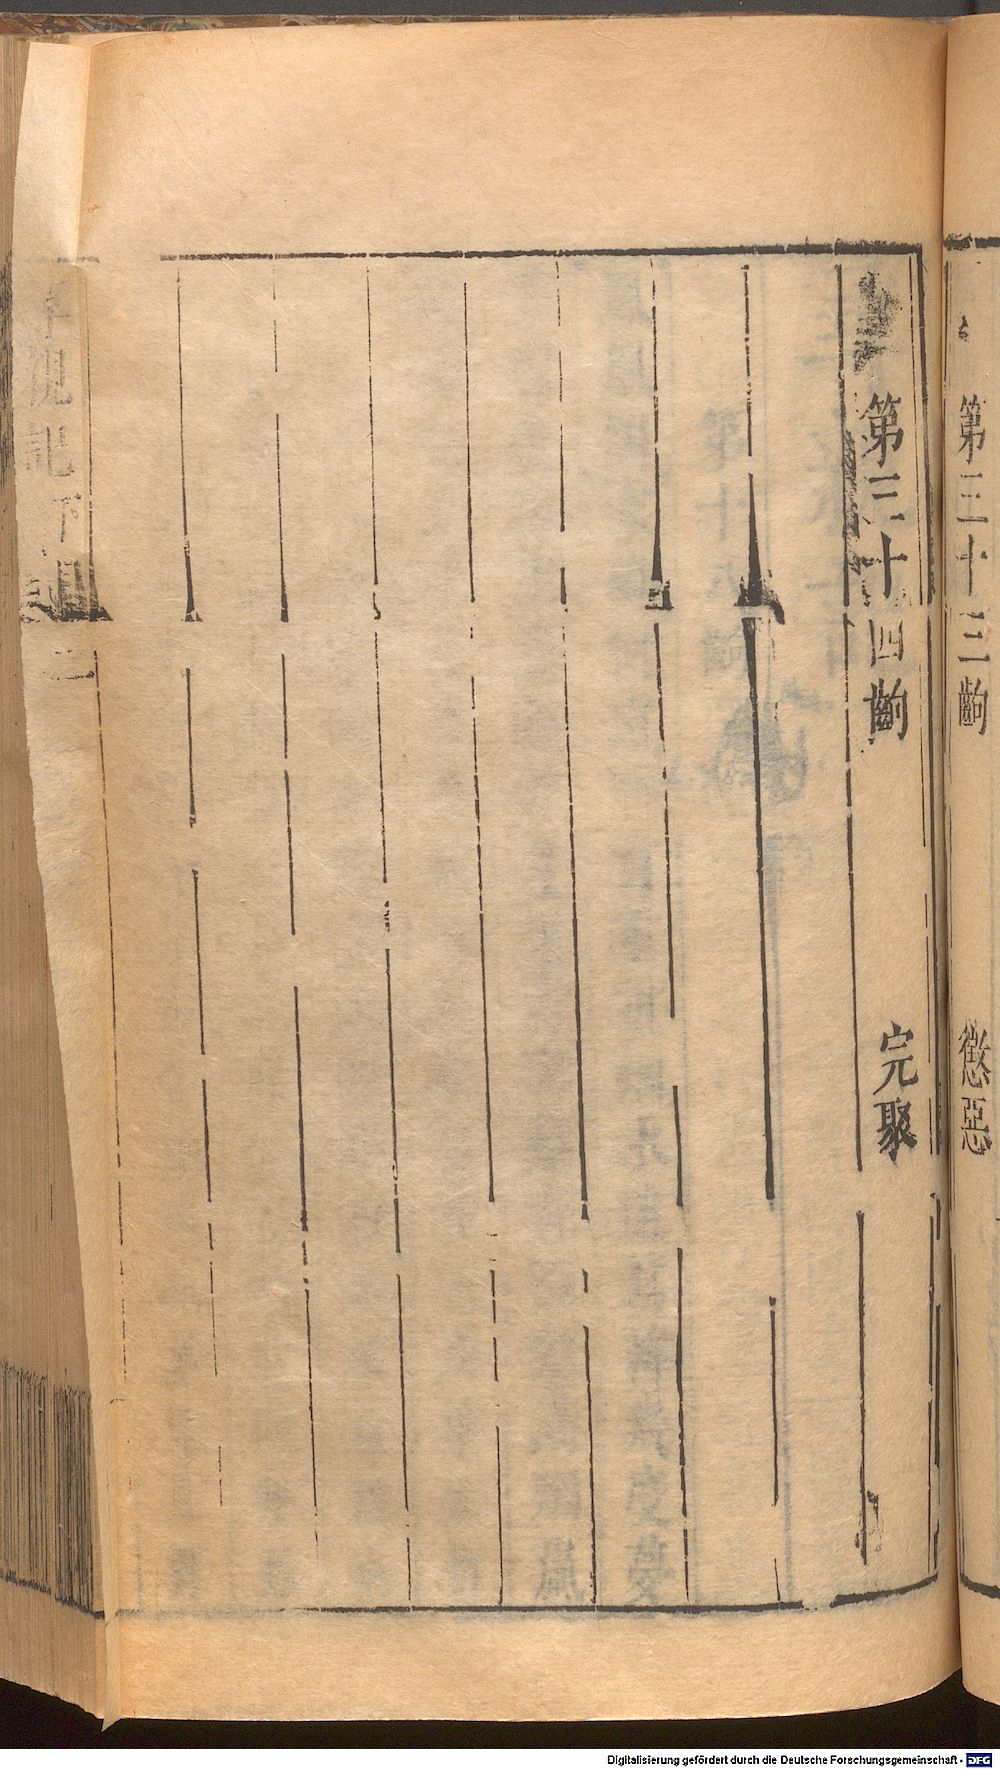 第三十三齣　懲惡
第三十四齣　完聚
記下
二
Digitalisierung gefördert durch die Deutsche Forschungsgemeinschaft - DFG